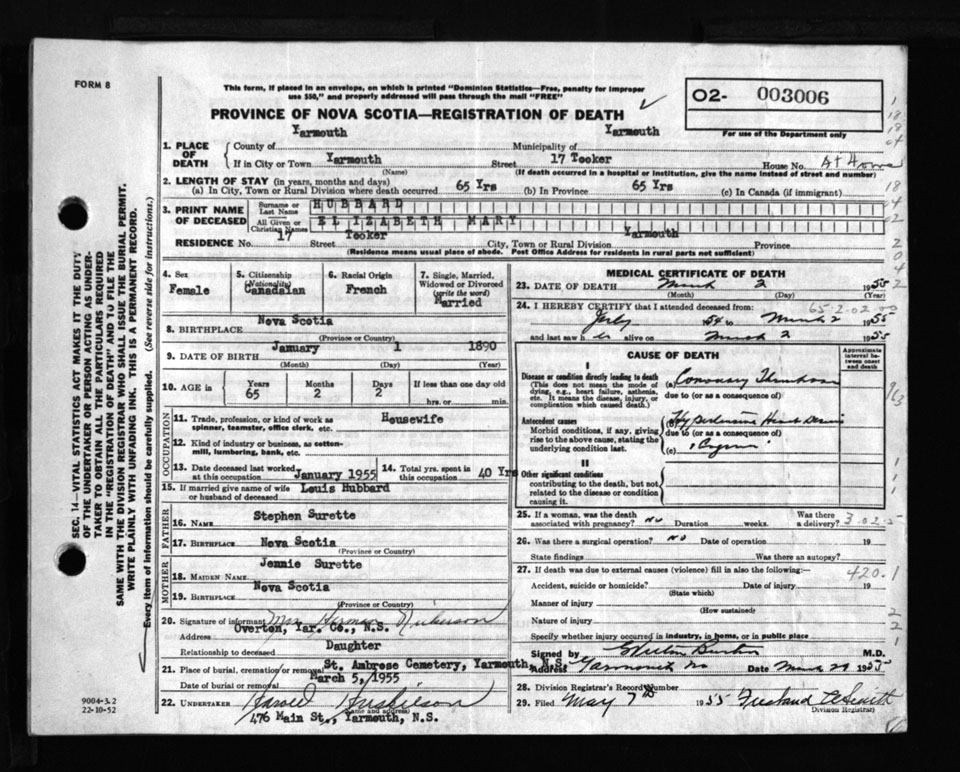 FORM 8
This form, if placed in an envelope, on which is printed "Dominion Statistics—Free, penalty for improper
use $50," and properly addressed will pass through the mail "FREE"
O2- 003006
For use of the Department only
PROVINCE OF NOVA SCOTIA—REGISTRATION OF DEATH
1. PLACE OF DEATH
County of Yarmouth Municipality of Yarmouth
If in City or Town Yarmouth Street 17 Tooker House No. At Home
(Name) (If death occurred in a hospital or institution, give the name instead of street and number)
2. LENGTH OF STAY (in years, months and days)
(a) In City, Town or Rural Division where death occurred 65 Yrs (b) In Province 65 Yrs (c) In Canada (if immigrant)
3. PRINT NAME OF DECEASED
Surname or Last Name HUBBARD
All Given or Christian Names ELIZABETH MARY
RESIDENCE No. 17 Street Tooker City, Town or Rural Division Yarmouth Province
(Residence means usual place of abode. Post Office Address for residents in rural parts not sufficient)
4. Sex Female
5. Citizenship (Nationality) Canadaian
6. Racial Origin French
7. Single, Married, Widowed or Divorced (write the word) Married
8. BIRTHPLACE Nova Scotia
(Province or Country)
9. DATE OF BIRTH January 1 1890
(Month) (Day) (Year)
10. AGE in Years 65 Months 2 Days 2 If less than one day old hrs. or min.
OCCUPATION
11. Trade, profession, or kind of work as spinner, teamster, office clerk, etc. Housewife
12. Kind of industry or business, as cotton-mill, lumbering, bank, etc.
13. Date deceased last worked at this occupation January 1955
14. Total yrs. spent in this occupation 40 Yrs
15. If married give name of wife or husband of deceased Louis Hubbard
FATHER
16. NAME Stephen Surette
17. BIRTHPLACE Nova Scotia
(Province or Country)
MOTHER
18. MAIDEN NAME Jennie Surette
19. BIRTHPLACE Nova Scotia
(Province or Country)
20. Signature of informant Mrs Herman Nickerson
Address Overton, Yar. Co., N.S.
Relationship to deceased Daughter
21. Place of burial, cremation or removal St. Ambrose Cemetery, Yarmouth, N.S.
Date of burial or removal March 5, 1955
22. UNDERTAKER Harold Huskilson
(Name and address)
476 Main St., Yarmouth, N.S.
MEDICAL CERTIFICATE OF DEATH
23. DATE OF DEATH March 2 1955
(Month) (Day) (Year)
65-2.02.00
24. I HEREBY CERTIFY that I attended deceased from:
July 1954 to March 2 1955
and last saw her alive on March 2 1955
CAUSE OF DEATH
Approximate interval between onset and death
I
Disease or condition directly leading to death (a) Coronary Thrombosis
(This does not mean the mode of dying, e.g., heart failure, asthenia, etc. It means the disease, injury, or complication which caused death.)
due to (or as a consequence of)
Antecedent causes (b) Hypertensive Heart Disease
Morbid conditions, if any, giving rise to the above cause, stating the underlying condition last.
due to (or as a consequence of)
(c)
II
Other significant conditions
contributing to the death, but not related to the disease or condition causing it.
25. If a woman, was the death associated with pregnancy? No Duration weeks. Was there a delivery?
26. Was there a surgical operation? No Date of operation 19
State findings Was there an autopsy?
27. If death was due to external causes (violence) fill in also the following:— 420.1
Accident, suicide or homicide? Date of injury 19
(State which)
Manner of injury
(How sustained)
Nature of injury
Specify whether injury occurred in industry, in home, or in public place
Signed by M.D.
Address Yarmouth NS Date March 20 1955
28. Division Registrar's Record Number
29. Filed May 7th 1955
Division Registrar
SEC. 14—VITAL STATISTICS ACT MAKES IT THE DUTY
OF THE UNDERTAKER OR PERSON ACTING AS UNDER-
TAKER TO OBTAIN ALL THE PARTICULARS REQUIRED
IN THE "REGISTRATION OF DEATH" AND TO FILE THE
SAME WITH THE DIVISION REGISTRAR WHO SHALL ISSUE THE BURIAL PERMIT.
WRITE PLAINLY WITH UNFADING INK. THIS IS A PERMANENT RECORD.
Every item of information should be carefully supplied. (See reverse side for instructions.)
9004-3.2
22-10-52